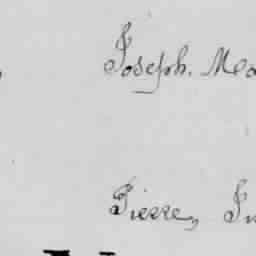 Joseph. Ma
Pierre,